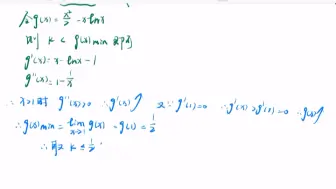 令g(x)=x²/2-xlnx
则 k<g(x)min 即可
g'(x)=x-lnx-1
g''(x)=1-1/x
∴x>1时 g''(x)>0 ∴g'(x)↗ 又∵g'(1)=0 ∴g'(x)>g'(1)=0 ∴g(x)↗
∴g(x)min=lim x→1 g(x)=g(1)=1/2
∴ k≤1/2